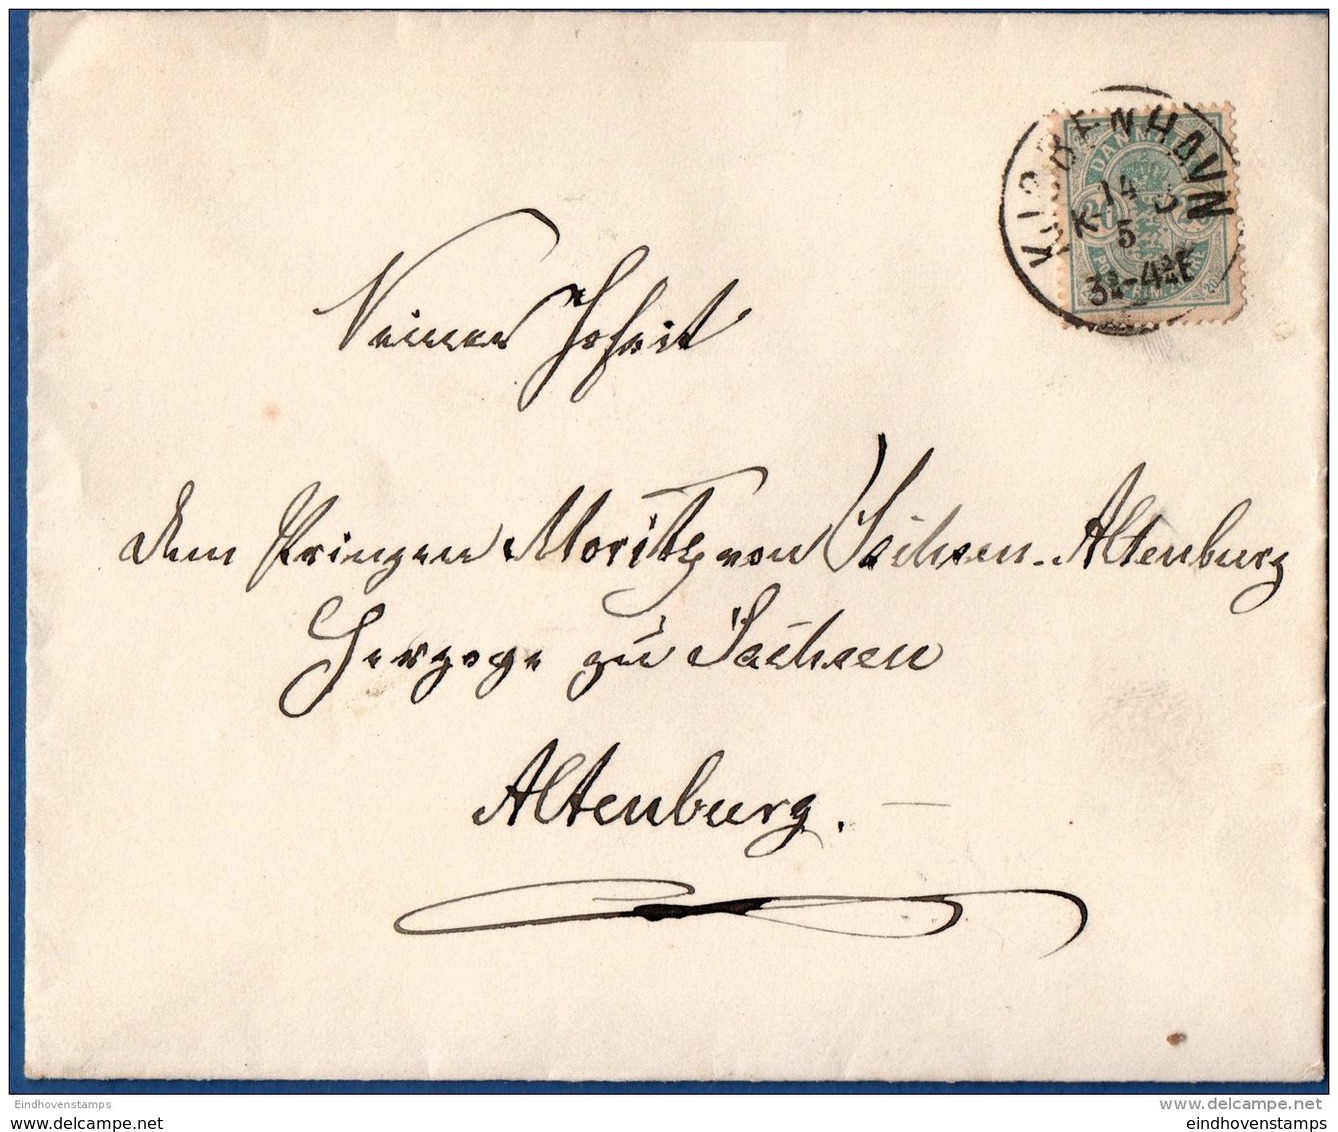 KJØBENHAVN
K. 14 3
5
3¼-4¾E
DANMARK
20 20
POSTFRIM. 20 ØRE
Seiner Hoheit
dem Prinzen Moritz von Sachsen-Altenburg
Herzoge zu Sachsen
Altenburg.
Eindhovenstamps
delcampe.net
www.delcampe.net
eindhovenstamps